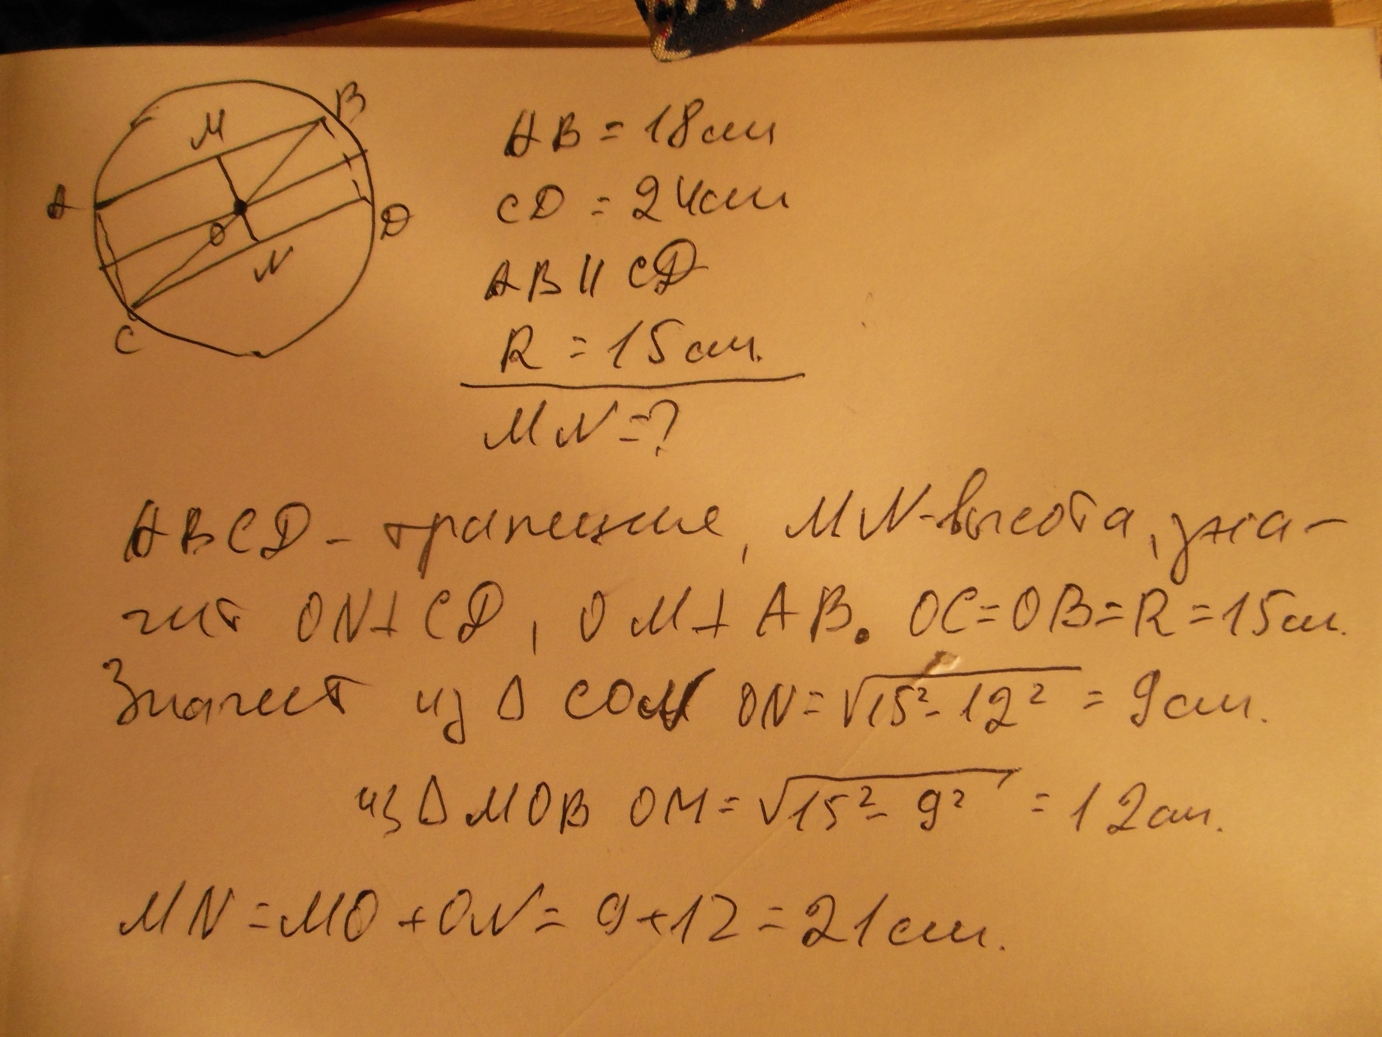 B
M
A
O
D
N
C
AB = 18см
CD = 24см
AB || CD
R = 15см.
MN = ?
ABCD - трапеция, MN-высота, зна-
чит ON⊥CD, OM⊥AB. OC=OB=R=15см.
Значит из Δ CON ON = √15² - 12² = 9см.
из Δ MOB OM = √15² - 9² = 12см.
MN = MO + ON = 9+12 = 21см.